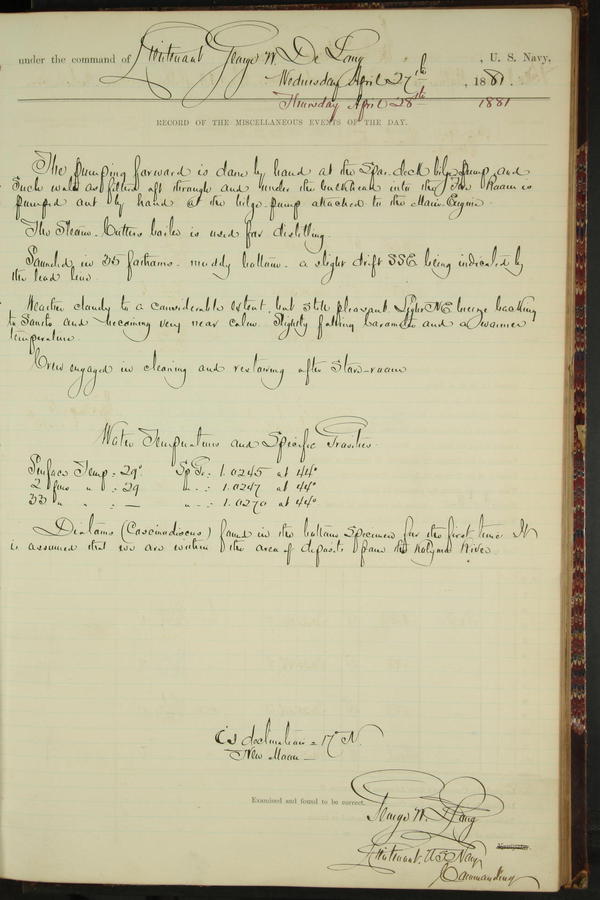 under the command of Lieutenant George W. De Long , U. S. Navy,
Wednesday April 27th , 1881.
Thursday April 28th 1881
RECORD OF THE MISCELLANEOUS EVENTS OF THE DAY.
The pumping forward is done by hand at the Spar deck bilge pump, and
such water as filters aft through and under the bulkhead into the Fire Room is
pumped out by hand at the bilge pump attached to the Main Engine.
The Steam-Cutters boiler is used for distilling.
Sounded in 33 fathoms - muddy bottom - a slight drift SSE being indicated by
the lead line.
Weather cloudy to a considerable extent, but still pleasant. Light NE breeze backing
to and becoming very near calm. Slightly falling barometer and a warmer
temperature.
Crew engaged in cleaning and restowing after store-room
Water Temperatures and Specific Gravities.
Surface Temp: 29° Sp Gr: 1.0245 at 44°
2 fms " : 29 " " : 1.0247 at 44°
33 " " : — " " : 1.0270 at 44°
Diatoms (Coscinodiscus) found in the bottom specimen for the first time. It
is assumed that we are within the area of deposits from the Kolyma River.
declination = 17° N.
New Moon —
Examined and found to be correct.
George W. De Long
Lieutenant, U.S. Navy
Navigator.
Commanding